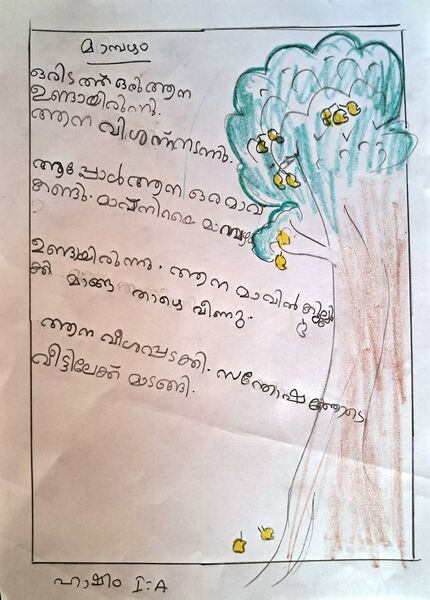 മാമ്പഴം
ഒരിടത്ത് ഒരു ആന
ഉണ്ടായിരുന്നു.
ആന വിശന്ന് നടന്നു.
അപ്പോൾ ആന ഒരു മാവ്
കണ്ടു. മാവ് നിറയെ മാമ്പഴം
ഉണ്ടായിരുന്നു. ആന മാവിൻ
ക്കി മാങ്ങ താഴെ വീണു.
ആന വിശപ്പടക്കി. സന്തോഷത്തോടെ
വീട്ടിലേക്ക് മടങ്ങി.
ഹാഷിം I:A